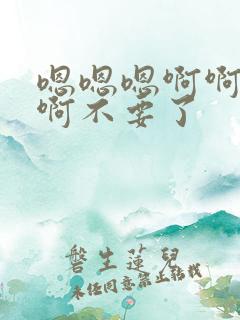 嗯嗯嗯啊啊
啊不要了
磐生莲儿
未经同意禁止转载